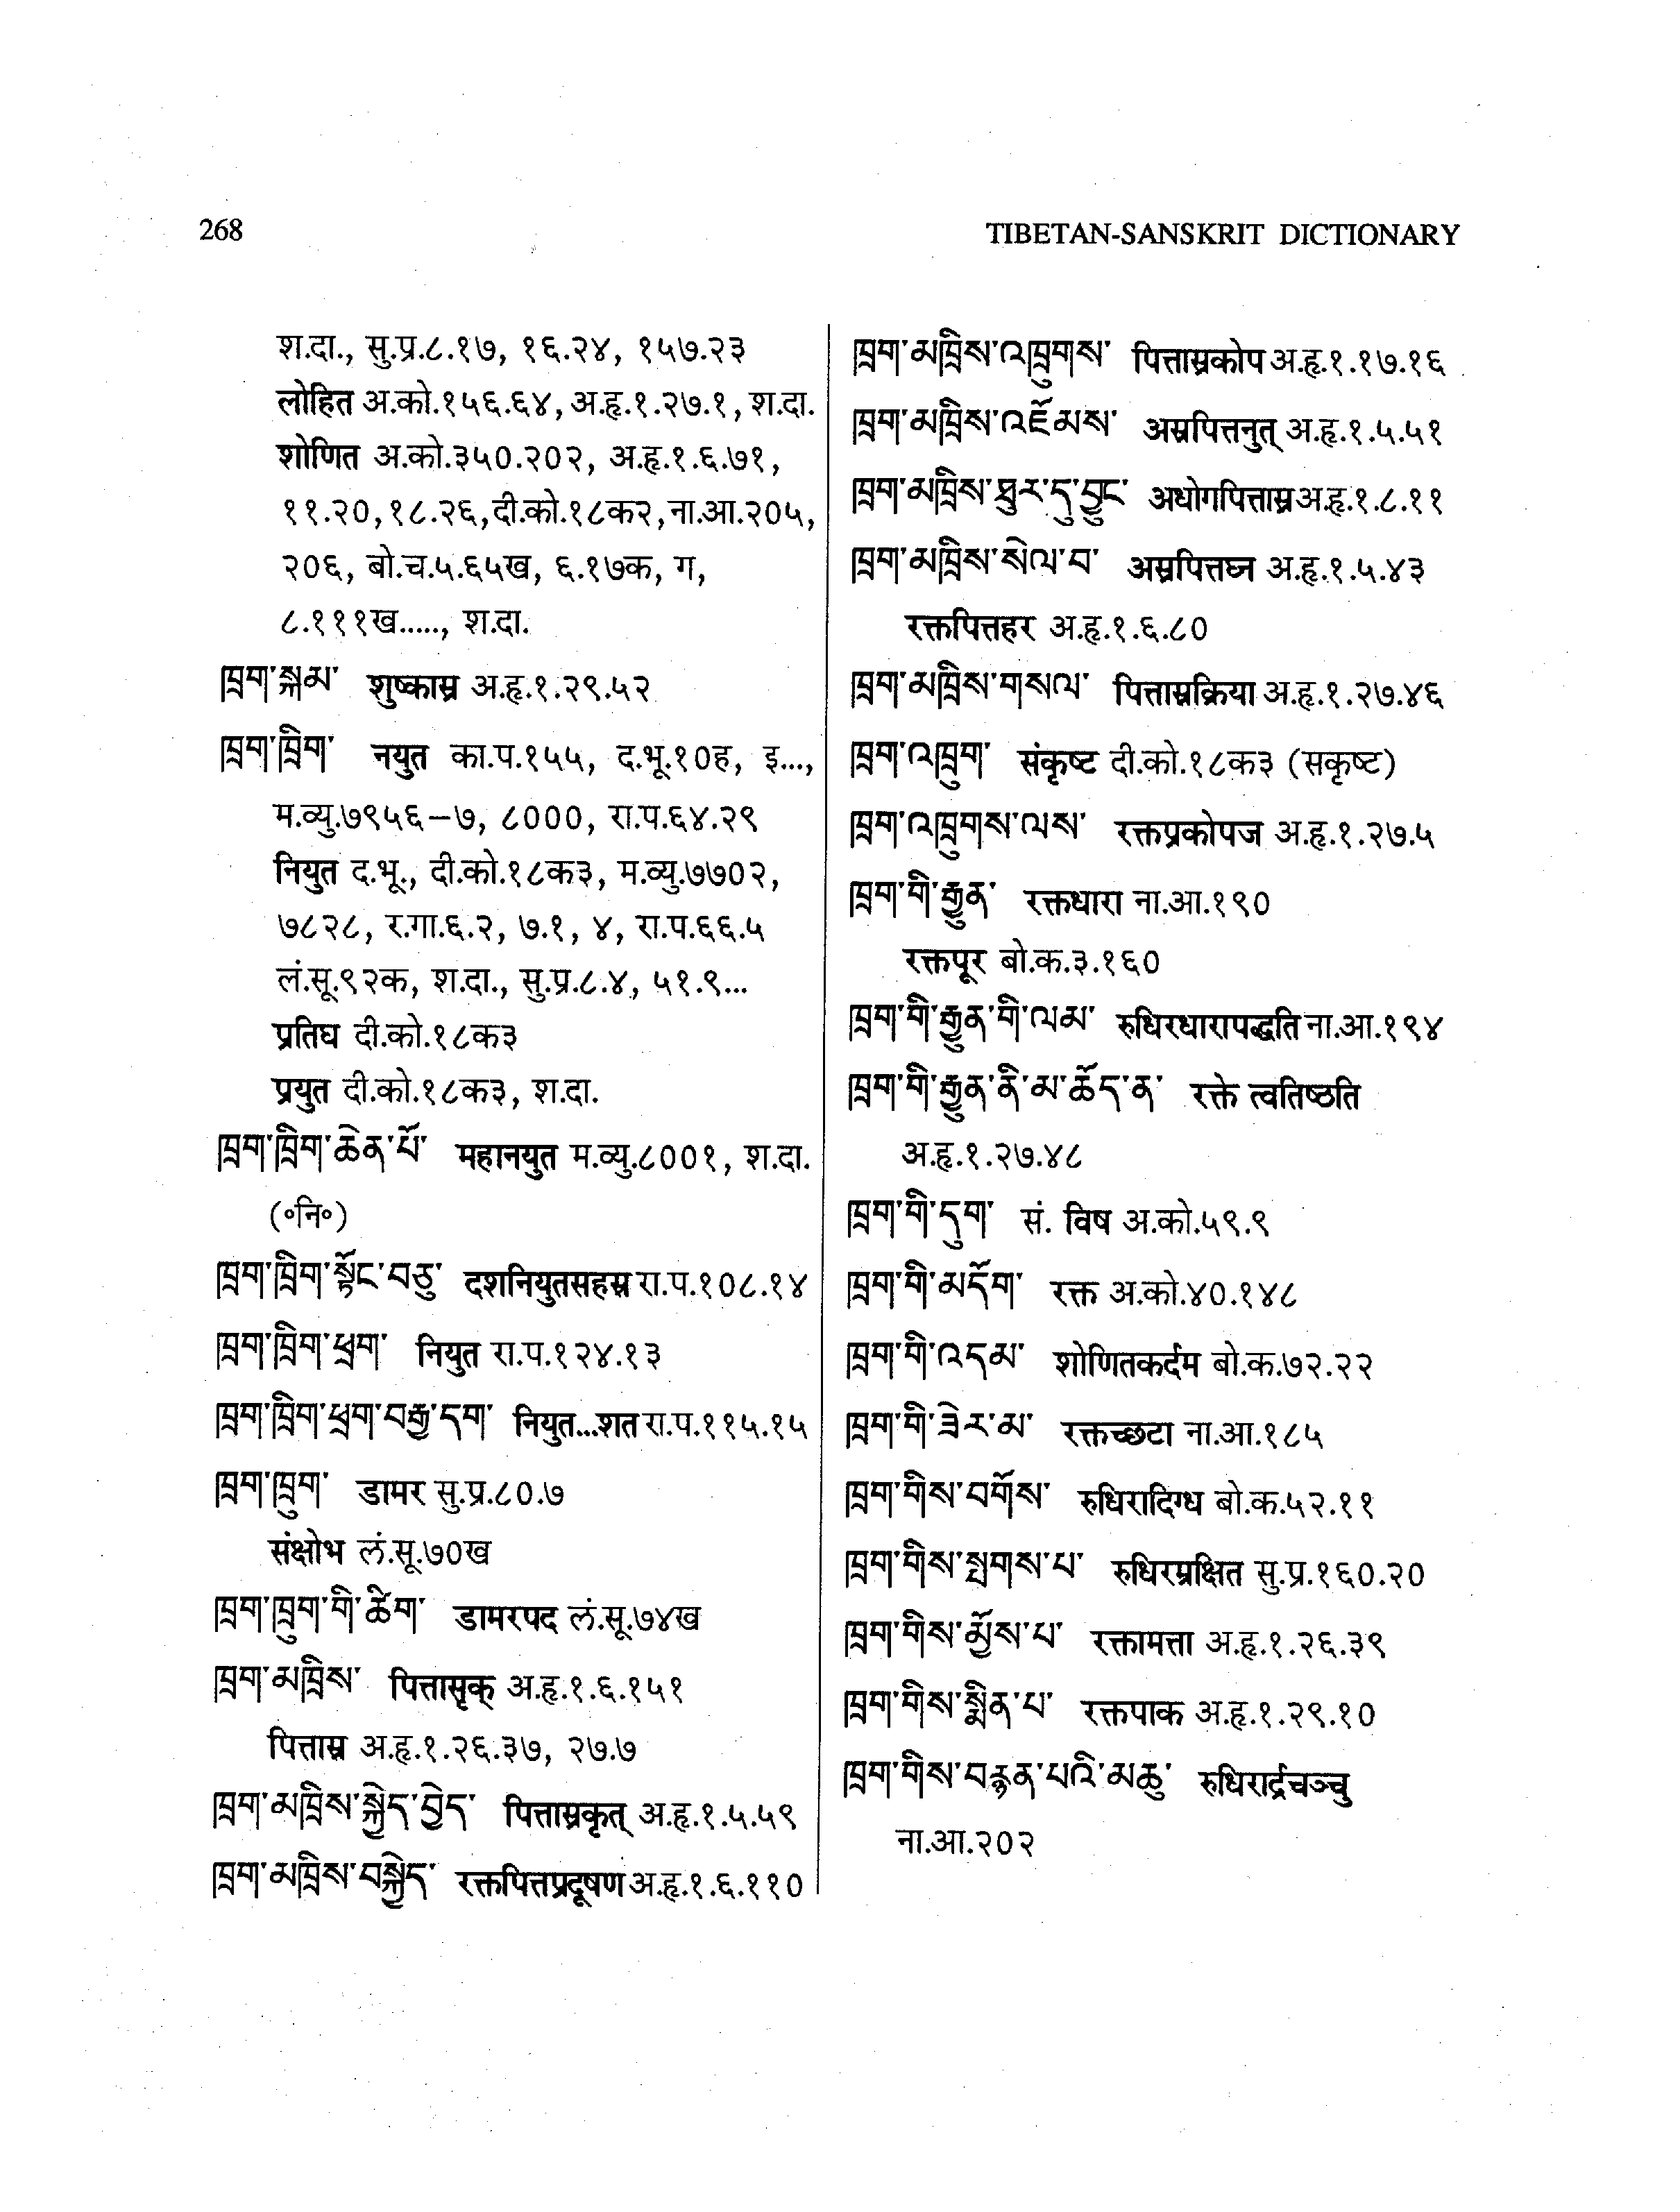 268
TIBETAN-SANSKRIT DICTIONARY
श.दा., सु.प्र.८.१७, १६.२४, १५७.२३
लोहित अ.को.१५६.६४, अ.हृ.१.२७.१, श.दा.
शोणित अ.को.३५०.२०२, अ.हृ.१.६.७१,
११.२०, १८.२६, दी.को.१८क२, ना.आ.२०५,
२०६, बो.च.५.६५ख, ६.१७क, ग,
८.१११ख....., श.दा.
ཁྲག་སྐམ་ शुष्कास्र अ.हृ.१.२९.५२
ཁྲག་ཁྲིག་ नयुत का.प.१५५, द.भू.१०ह, इ...,
म.व्यु.७९५६–७, ८०००, रा.प.६४.२९
नियुत द.भू., दी.को.१८क३, म.व्यु.७७०२,
७८२८, र.गा.६.२, ७.१, ४, रा.प.६६.५
लं.सू.९२क, श.दा., सु.प्र.८.४, ५१.९...
प्रतिघ दी.को.१८क३
प्रयुत दी.को.१८क३, श.दा.
ཁྲག་ཁྲིག་ཆེན་པོ་ महानयुत म.व्यु.८००१, श.दा.
(॰नि॰)
ཁྲག་ཁྲིག་སྟོང་བཅུ་ दशनियुतसहस्र रा.प.१०८.१४
ཁྲག་ཁྲིག་ཕྲག་ नियुत रा.प.१२४.१३
ཁྲག་ཁྲིག་ཕྲག་བརྒྱ་དག་ नियुत...शत रा.प.११५.१५
ཁྲག་ཁྲུག་ डामर सु.प्र.८०.७
संक्षोभ लं.सू.७०ख
ཁྲག་ཁྲུག་གི་ཚིག་ डामरपद लं.सू.७४ख
ཁྲག་མཁྲིས་ पित्तासृक् अ.हृ.१.६.१५१
पित्तास्र अ.हृ.१.२६.३७, २७.७
ཁྲག་མཁྲིས་སྐྱེད་བྱེད་ पित्तास्रकृत् अ.हृ.१.५.५९
ཁྲག་མཁྲིས་བསྐྱེད་ रक्तपित्तप्रदूषण अ.हृ.१.६.११०
ཁྲག་མཁྲིས་འཁྲུགས་ पित्तास्रकोप अ.हृ.१.१७.१६
ཁྲག་མཁྲིས་འཇོམས་ अस्रपित्तनुत् अ.हृ.१.५.५१
ཁྲག་མཁྲིས་ཐུར་དུ་བྱུང་ अधोगपित्तास्र अ.हृ.१.८.११
ཁྲག་མཁྲིས་སེལ་བ་ अस्रपित्तघ्न अ.हृ.१.५.४३
रक्तपित्तहर अ.हृ.१.६.८०
ཁྲག་མཁྲིས་གསལ་ पित्तास्रक्रिया अ.हृ.१.२७.४६
ཁྲག་འཁྲུག་ संकृष्ट दी.को.१८क३ (सकृष्ट)
ཁྲག་འཁྲུགས་ལས་ रक्तप्रकोपज अ.हृ.१.२७.५
ཁྲག་གི་རྒྱུན་ रक्तधारा ना.आ.१९०
रक्तपूर बो.क.३.१६०
ཁྲག་གི་རྒྱུན་གི་ལམ་ रुधिरधारापद्धति ना.आ.१९४
ཁྲག་གི་རྒྱུན་ནི་མ་ཆོད་ན་ रक्ते त्वतिष्ठति
अ.हृ.१.२७.४८
ཁྲག་གི་དུག་ सं. विष अ.को.५९.९
ཁྲག་གི་མདོག་ रक्त अ.को.४०.१४८
ཁྲག་གི་འདམ་ शोणितकर्दम बो.क.७२.२२
ཁྲག་གི་ཟེར་མ་ रक्तच्छटा ना.आ.१८५
ཁྲག་གིས་བགོས་ रुधिरादिग्ध बो.क.५२.११
ཁྲག་གིས་སྤགས་པ་ रुधिरम्रक्षित सु.प्र.१६०.२०
ཁྲག་གིས་མྱོས་པ་ रक्तामत्ता अ.हृ.१.२६.३९
ཁྲག་གིས་སྨིན་པ་ रक्तपाक अ.हृ.१.२९.१०
ཁྲག་གིས་བརྙན་པའི་མཆུ་ रुधिरार्द्रचञ्चु
ना.आ.२०२